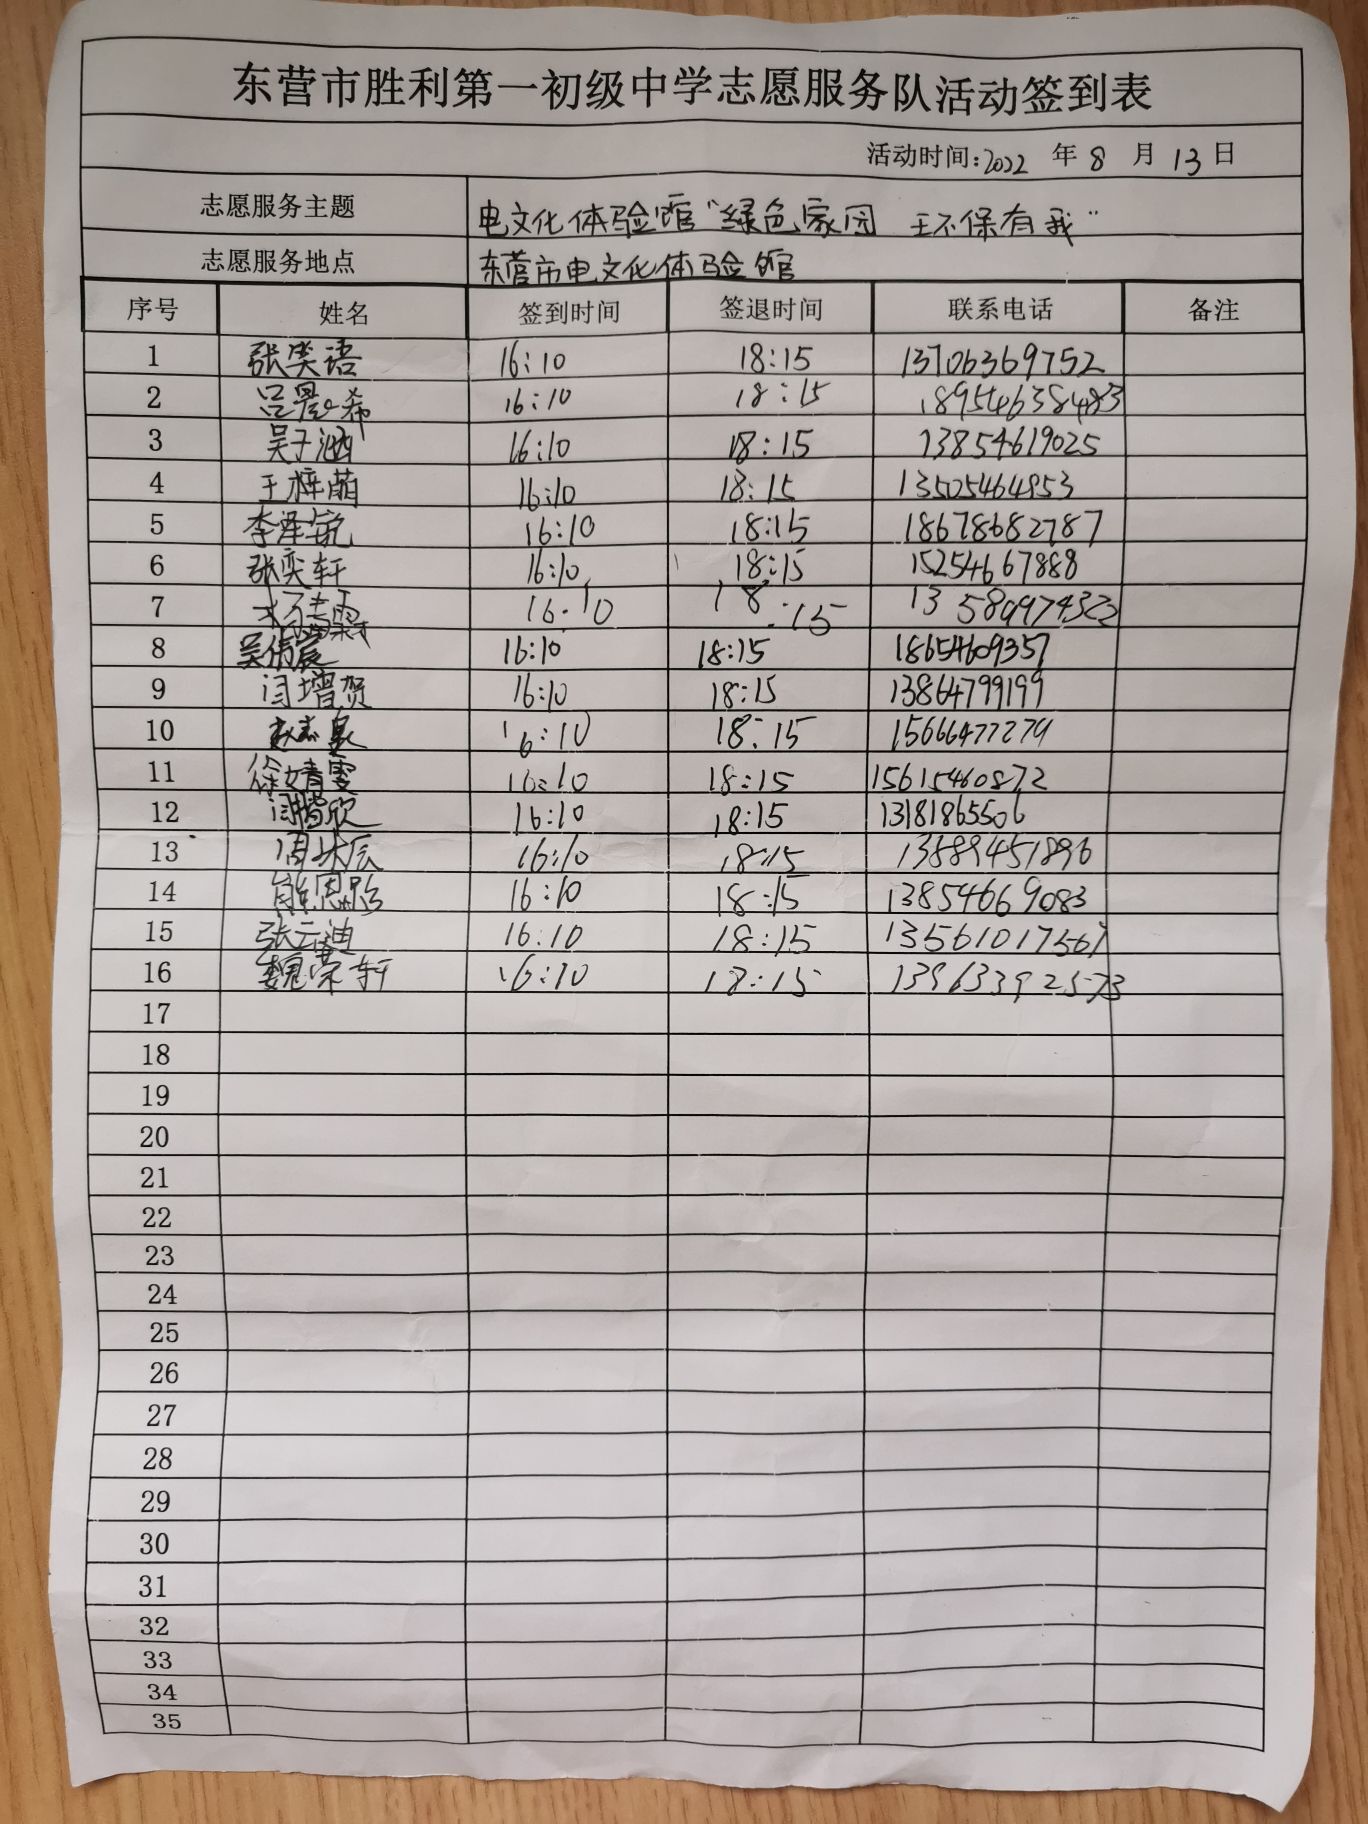 东营市胜利第一初级中学志愿服务队活动签到表
活动时间:2022 年 8 月 13 日
志愿服务主题 电文化体验馆“绿色家园 环保有我”
志愿服务地点 东营市电文化体验馆
序号 姓名 签到时间 签退时间 联系电话 备注
1 张笑语 16:10 18:15 13706369752
2 吕晨希 16:10 18:15 18954638483
3 吴子涵 16:10 18:15 13854619025
4 王梓萌 16:10 18:15 13505464953
5 李泽毓 16:10 18:15 18678682787
6 张奕轩 16:10 18:15 15254667888
7 16:10 18:15
8 吴倩宸 16:10 18:15 18654609357
9 闫增贺 16:10 18:15 13864799199
10 16:10 18:15 15666477279
11 徐婧雯 16:10 18:15 15615460872
12 16:10 18:15 13181865506
13 16:10 18:15 13589451896
14 16:10 18:15 13854669083
15 张云迪 16:10 18:15 13561017567
16 魏荣轩 16:10 18:15 13963392573
17
18
19
20
21
22
23
24
25
26
27
28
29
30
31
32
33
34
35